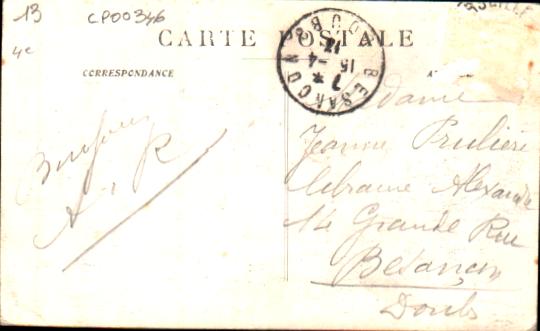 13
CPOO346
4e
CARTE POSTALE
CORRESPONDANCE
BESANÇON
DOUBS
7 *
15 -4
12
Bonjour
A. R
Madame
Jeanne Prulière
librairie Alexandre
14 Grande Rue
Besançon
Doubs